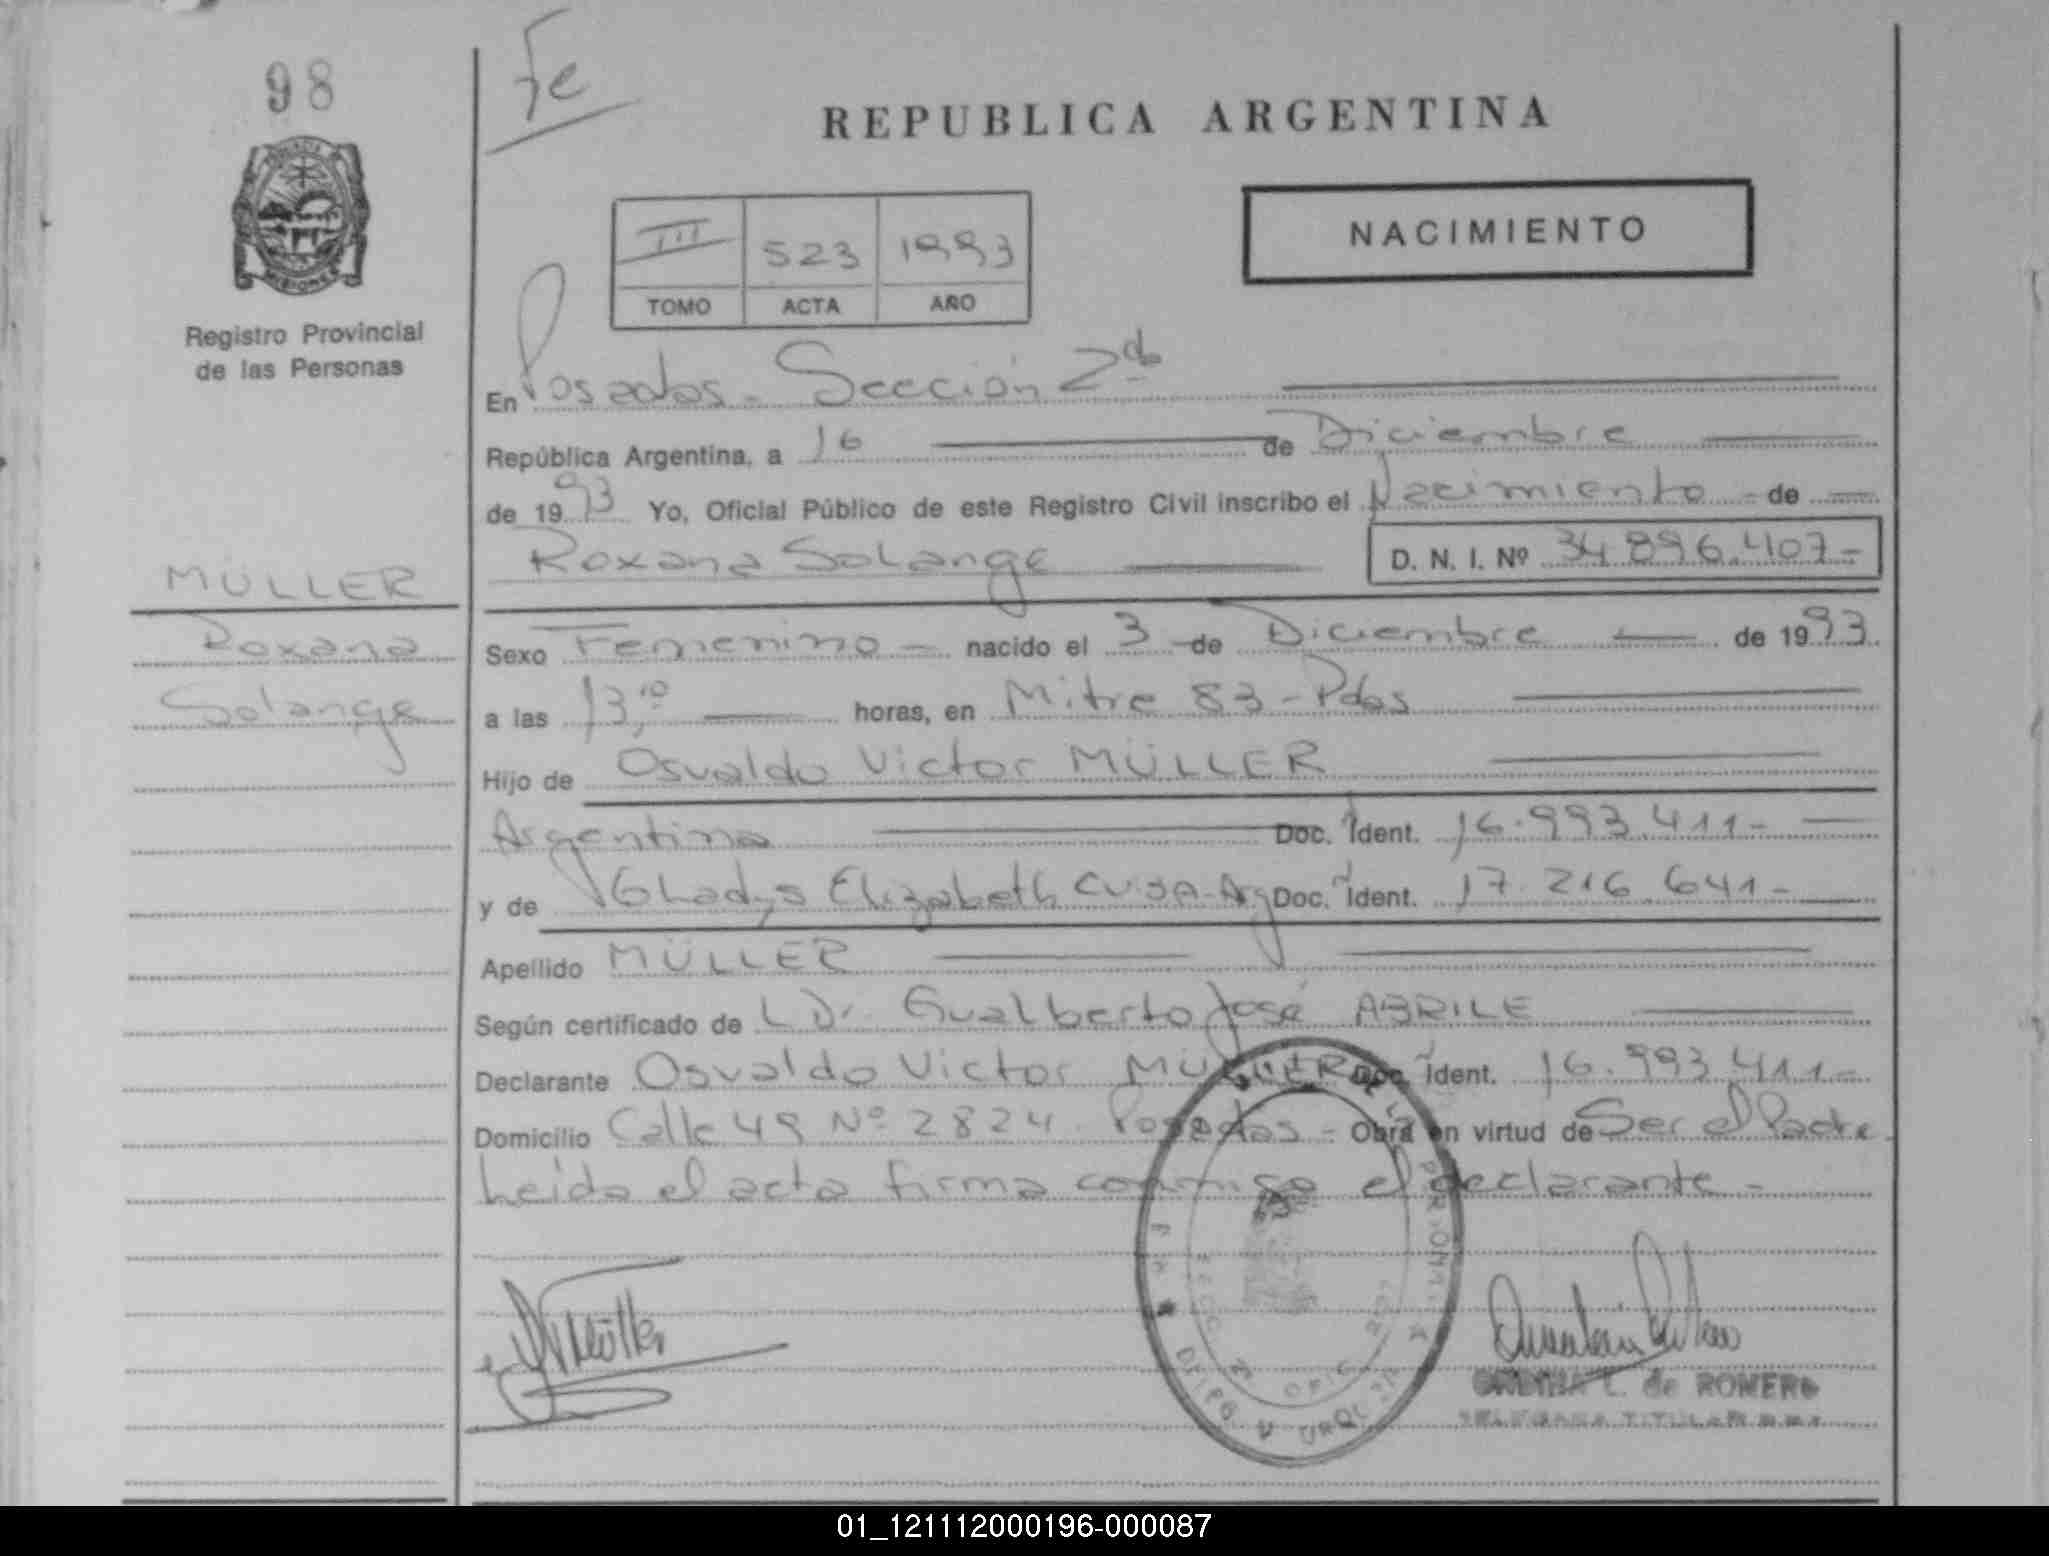 98
Fe
REPUBLICA ARGENTINA
NACIMIENTO
III 523 1993
TOMO ACTA AÑO
MISIONES
Registro Provincial
de las Personas
En Posadas - Sección 2da
República Argentina, a 16 de Diciembre
de 1993 Yo, Oficial Público de este Registro Civil inscribo el Nacimiento - de
Roxana Solange D. N. I. Nº 34.896.407-
MÜLLER
Roxana
Solange
Sexo Femenino - nacido el 3 - de Diciembre de 1993.
a las 13,10 horas, en Mitre 83 - Pdas
Hijo de Osvaldo Victor MÜLLER
Argentina Doc. Ident. 16.993.411-
y de Gladys Elizabeth - Arg Doc. Ident. 17.216.641-
Apellido MÜLLER
Según certificado de L Dr. Gualberto José ABRILE
Declarante Osvaldo Victor MÜLLER Doc. Ident. 16.993.411-
Domicilio Calle 49 Nº 2824 Posadas - Obra en virtud de Ser el Padre.
Leída el acta firma conmigo el declarante -
Müller
L. de ROMERO
TITULAR
01_121112000196-000087